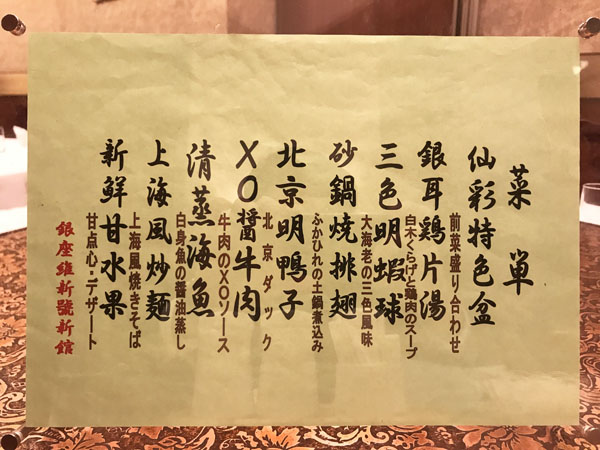 菜単
仙彩特色盆
前菜盛り合わせ
銀耳鶏片湯
白木くらげと鶏肉のスープ
三色明蝦球
大海老の三色風味
砂鍋焼排翅
ふかひれの土鍋煮込み
北京明鴨子
北京ダック
XO醤牛肉
牛肉のXOソース
清蒸海魚
白身魚の醤油蒸し
上海風炒麺
上海風焼きそば
新鮮甘水果
甘点心・デザート
銀座維新號新館